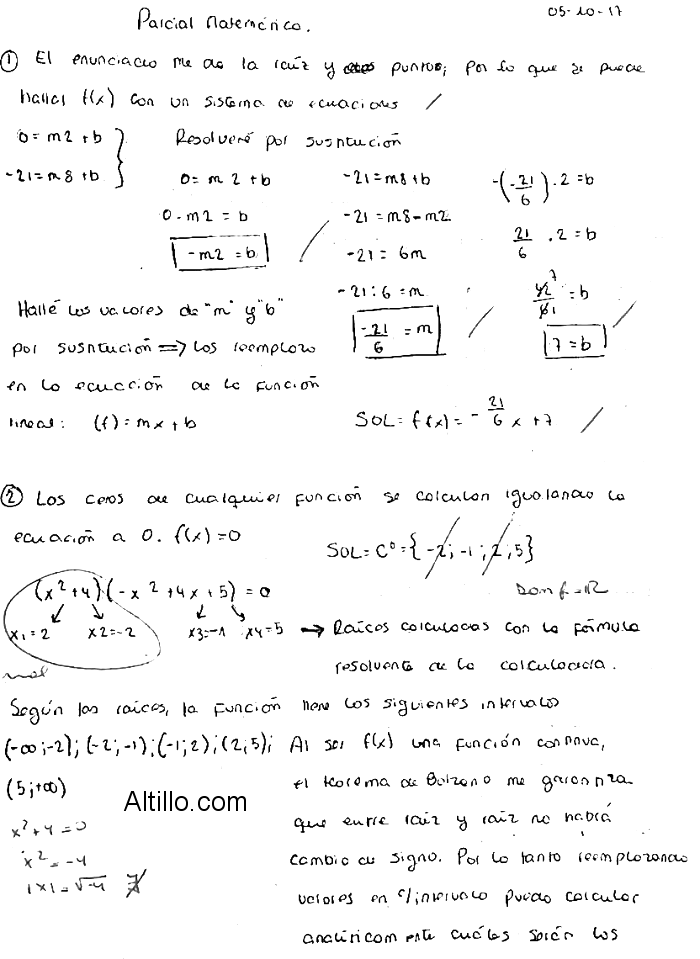 05-10-17
Parcial Matemático.
① El enunciado me da la raíz y puntos; por lo que se puede
hallar f(x) con un sistema de ecuaciones
0 = m2 + b
-21 = m8 + b
Resolveré por sustitución
0 = m2 + b
0 - m2 = b
-m2 = b
-21 = m8 + b
-21 = m8 - m2
-21 = 6m
-21 : 6 = m
-21/6 = m
-(-21/6) . 2 = b
21/6 . 2 = b
42/6 = b
7
1
7 = b
Hallé los valores de "m" y "b"
por sustitución ⇒ los reemplazo
en la ecuación de la función
lineal: (f) = mx + b
SOL = f(x) = -21/6 x + 7
② Los ceros de cualquier función se calculan igualando la
ecuación a 0. f(x) = 0
SOL = C⁰ = {-2; -1; 2; 5}
Dom f = R
(x² + 4) (-x² + 4x + 5) = 0
x₁ = 2 x2 = -2 x3 = -1 x4 = 5 → Raíces calculadas con la fórmula
resolvente de la calculadora.
mal
Según las raíces, la función tiene los siguientes intervalos
(-∞; -2); (-2; -1); (-1; 2); (2; 5);
(5; +∞)
Al ser f(x) una función continua,
el teorema de Bolzano me garantiza
que entre raíz y raíz no habrá
cambio de signo. Por lo tanto reemplazando
valores en c/intervalo puedo calcular
analíticamente cuáles serán los
Altillo.com
x² + 4 = 0
x² = -4
|x| = √-4 ∄